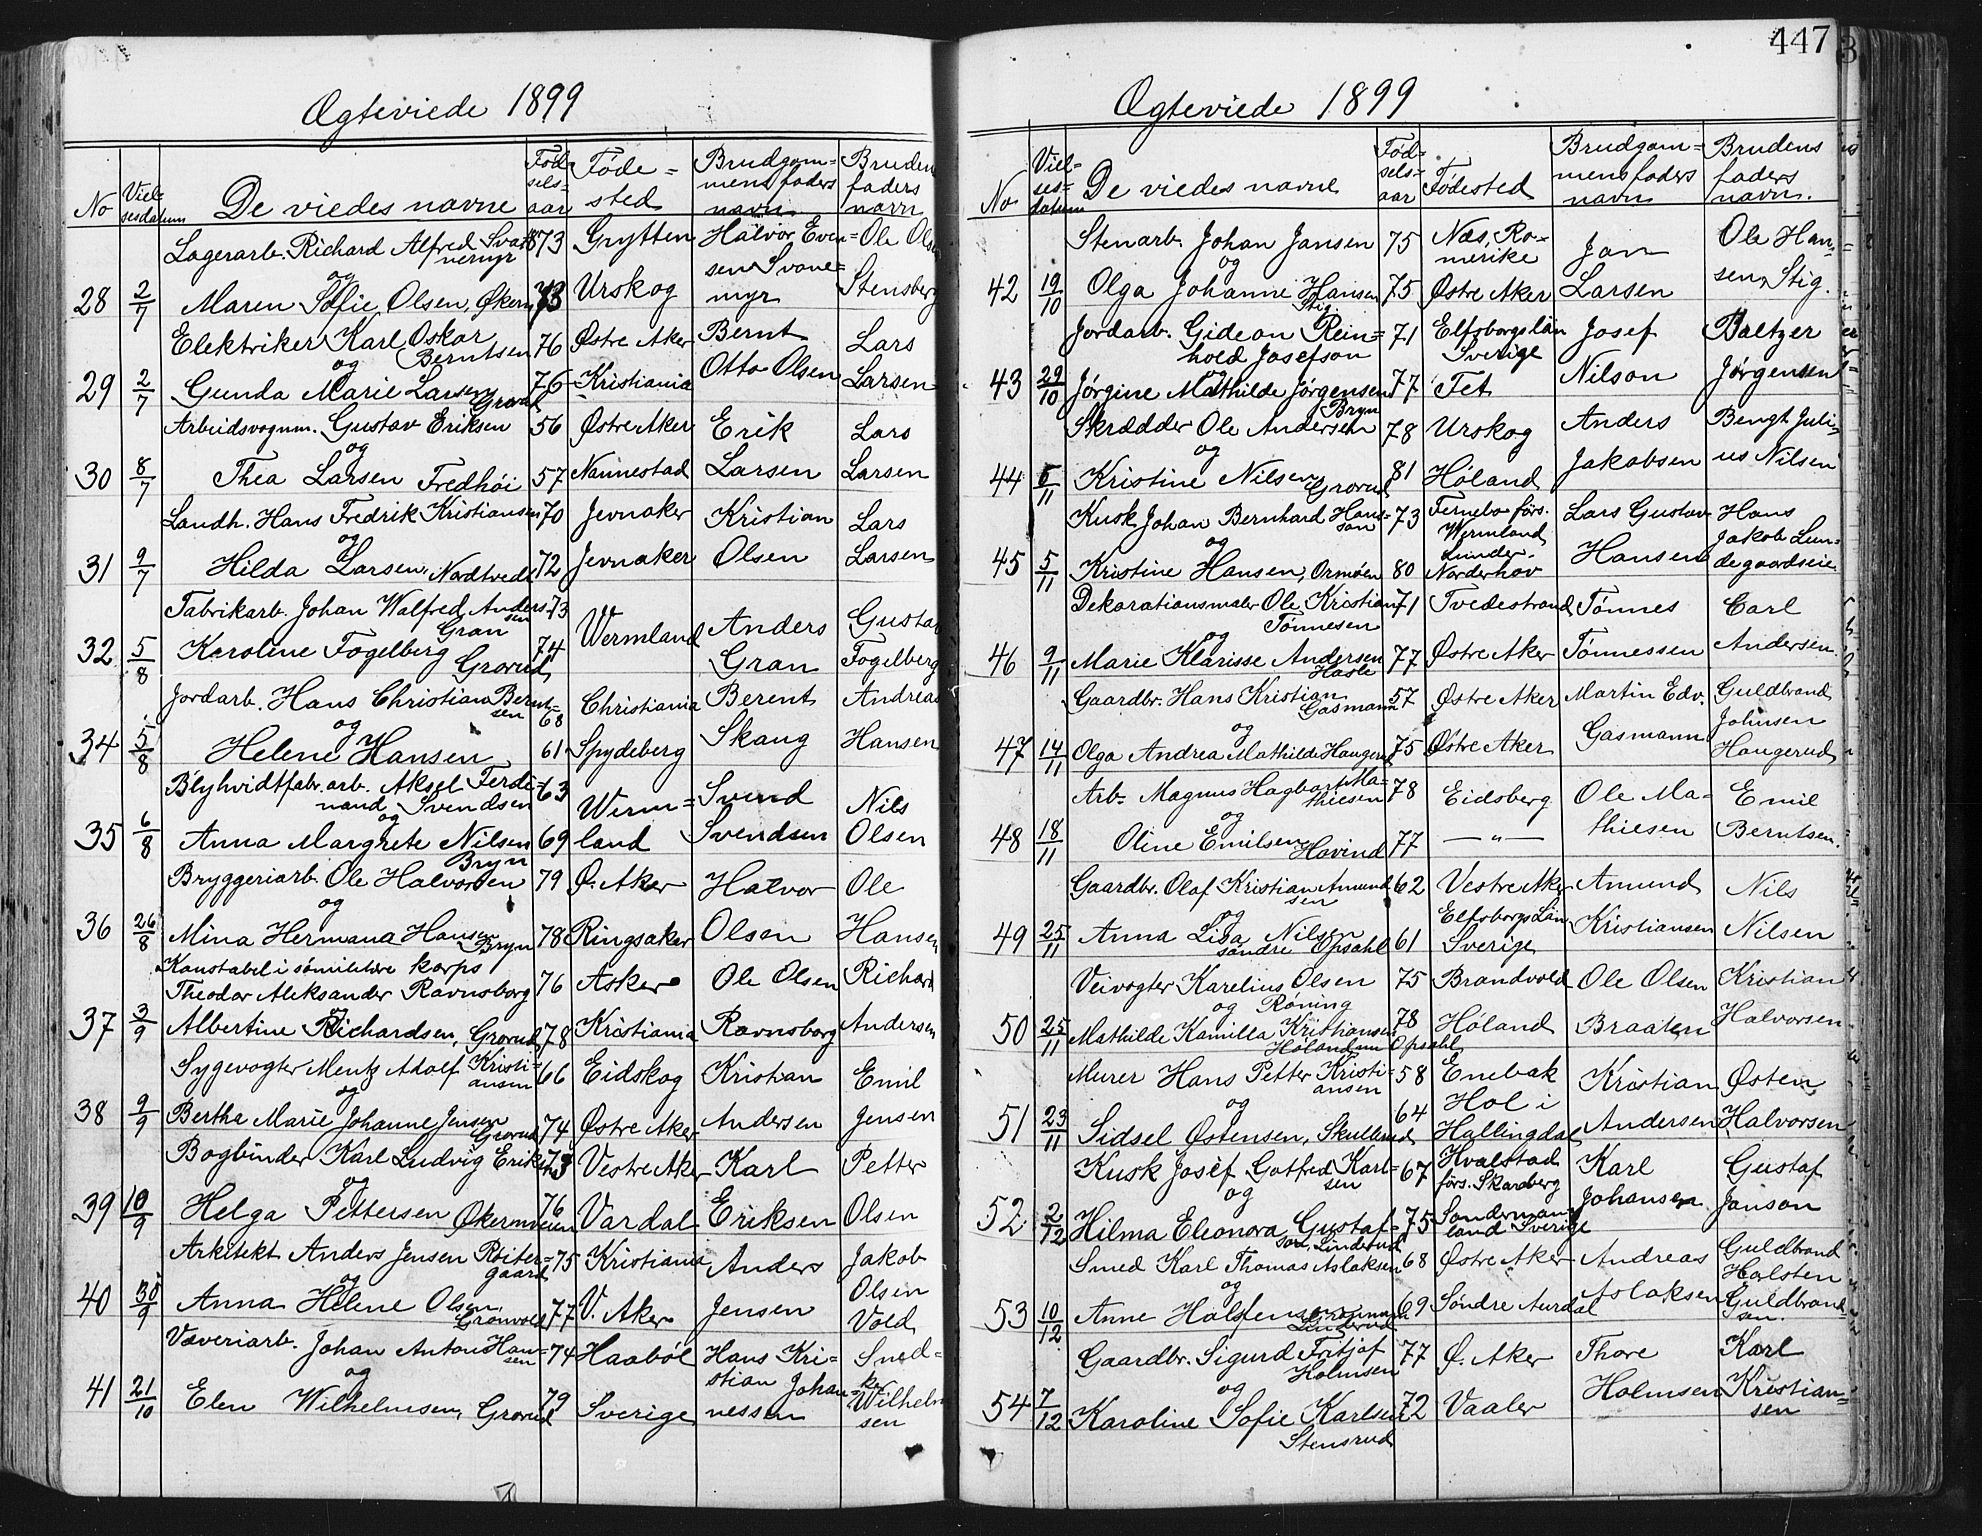 447
Ægteviede 1899
No
Vielsesdatum
De viedes navne
Fødselsaar
Fødested
Brudgommens faders navn
Brudens faders navn
Lagerarb. Richard Alfred Svanemyr 73 Grytten Halvor Evensen Svanemyr Ole Olsen Stensberg
og
28 2/7 Maren Sofie Olsen, Økern 73 Urskog
Elektriker Karl Oskar Berntsen 76 Østre Aker Bernt Otto Olsen Lars Larsen
og
29 2/7 Gunda Marie Larsen Grorud 76 Kristiania
Arbeidsvognm. Gustav Eriksen 56 Østre Aker Erik Larsen Lars Larsen
og
30 8/7 Thea Larsen Fredhøi 57 Nannestad
Landh. Hans Fredrik Kristiansen 70 Jevnaker Kristian Olsen Lars Larsen
og
31 9/7 Hilda Larsen, Nordtvedt 72 Jevnaker
Fabrikarb. Johan Walfred Andersen Gran 73 Wermland Anders Gran Gustav Fogelberg
32 5/8 Karoline Fogelberg Grorud 74
Jordarb. Hans Christian Berntsen 68 Christiania Berent Skaug Andreas Hansen
og
34 5/8 Helene Hansen 61 Spydeberg
Blyhvidtfabr.arb. Aksel Ferdinand Svendsen 63 Wermland Svend Svendsen Nils Olsen
og
35 6/8 Anna Margrete Nilsen Bryn 69
Bryggeriarb. Ole Halvorsen 79 Ø. Aker Halvor Olsen Ole Hansen
og
36 26/8 Mina Hermana Hansen Bryn 78 Ringsaker
Konstabel i sømilitære korps
Theodor Aleksander Ravnsborg 76 Asker Ole Olsen Ravnsborg Richard Andersen
og
37 3/9 Albertine Richardsen, Grorud 78 Kristiania
Sygevogter Mentz Adolf Kristiansen 66 Eidskog Kristian Andersen Emil Jensen
og
38 9/9 Bertha Marie Johanne Jensen Grorud 74 Østre Aker
Bogbinder Karl Ludvig Eriksen 73 Vestre Aker Karl Eriksen Petter Olsen
og
39 10/9 Helga Pettersen Økernveien 76 Vardal
Arkitekt Anders Jensen Røitergaard 75 Kristiania Anders Jensen Jakob Olsen Vold
og
40 30/9 Anna Helene Olsen, Grønvold 77 V. Aker
Væveriarb. Johan Anton Hansen 74 Haabøl Hans Kristian Johannessen Snedker Wilhelmsen
og
41 21/10 Elen Wilhelmsen, Grorud 79 Sverige
Ægteviede 1899
No
Vielsesdatum
De viedes navne
Fødselsaar
Fødested
Brudgommens faders navn
Brudens faders navn.
Stenarb. Johan Jansen 75 Næs, Romerike Jan Larsen Ole Hansen, Stig.
og
42 19/10 Olga Johanne Hansen Stig. 75 Østre Aker
Jordarb. Gideon Reinhold Josefson 71 Elfsborgs län Sverige Josef Nilson Baltzer Jørgensen
og
43 29/10 Jørgine Mathilde Jørgensen Bryn 77 Fet
Skrædder Ole Andersen 78 Urskog Anders Jakobsen Bengt Julius Nilsen
og
44 5/11 Kristine Nilsen Grorud 81 Høland
Kusk Johan Bernhard Hansson 73 Fernebo förs. Wermland Lars Gustav Hansen Hans Jakob Lundegaardseie
og
45 5/11 Kristine Hansen, Ormøen 80 Lunder. Norderhov
Dekorationsmaler Ole Kristian Tønnesen 71 Tvedestrand Tønnes Tønnessen Carl Andersen.
og
46 9/11 Marie Klarisse Andersen Hasle 77 Østre Aker
Gaardbr. Hans Kristian Gasmann 57 Østre Aker Martin Edv. Gasmann Guldbrand Johnsen Haugerud
og
47 14/11 Olga Andrea Mathilde Haugerud 75 Østre Aker
Arb. Magnus Hagbart Mathiesen 78 Eidsberg Ole Mathiesen Emil Berntsen.
og
48 18/11 Oline Emilsen Hovind 77 — „ —
Gaardbr. Olaf Kristian Amundsen 62 Vestre Aker Amund Kristiansen Nils Nilsen
og
49 25/11 Anna Lisa Nilsen søndre Opsahl 61 Elfsborgs Län Sverige
Veivogter Karelius Olsen Røning 75 Brandvold Ole Olsen Braaten Kristian Halvorsen
og
50 25/11 Mathilde Kamilla Kristiansen Opsahl 78 Høland
Murer Hans Petter Kristiansen 58 Enebak Kristian Andersen Østen Halvorsen
og
51 23/11 Sidsel Østensen, Skullerud 64 Hol i Hallingdal
Kusk Josef Gotfred Karlsen 67 Hvalstad förs. Skaraberg Karl Johansen Gustaf Janson
og
52 2/12 Hilma Eleonora Gustafson, Linderud 75 Sondermanland Sverige
Smed Karl Thomas Aslaksen 68 Østre Aker Andreas Aslaksen Guldbrand Halsten Guldbrandsen.
og
53 10/12 Anne Halstensen Linderud 69 Søndre Aurdal
Gaardbr. Sigurd Fritjof Holmsen 77 Ø. Aker Thore Holmsen Karl Kristiansen
og
54 7/12 Karoline Sofie Karlsen Stensrud 72 Vaaler